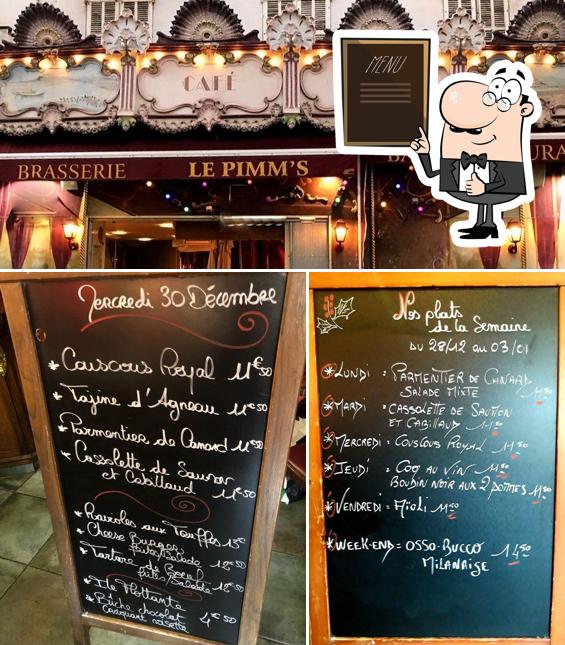 CAFÉ
MENU
BRASSERIE LE PIMM'S
Mercredi 30 Décembre
Couscous Royal 11€50
Tajine d'Agneau 11€50
Parmentier de Canard 11€50
Cassolette de Saumon
et Cabillaud 11€50
Ravioles aux Truffes
Cheese Burger
frites/Salade 12€50
Tartare de Boeuf
frites/Salade 12€50
Ile Flottante
Bûche chocolat
craquant noisette 4€50
Nos plats
de la Semaine
DU 28/12 AU 03/01
LUNDI = PARMENTIER DE CANARD
SALADE MIXTE 11€50
MARDI = CASSOLETTE DE SAUMON
ET CABILLAUD 11€50
MERCREDI = COUSCOUS ROYAL 11€50
JEUDI = COQ AU VIN 11€50
BOUDIN NOIR AUX 2 POMMES 11€50
VENDREDI = AIOLI 11€50
WEEK-END = OSSO-BUCCO 14€50
MILANAISE